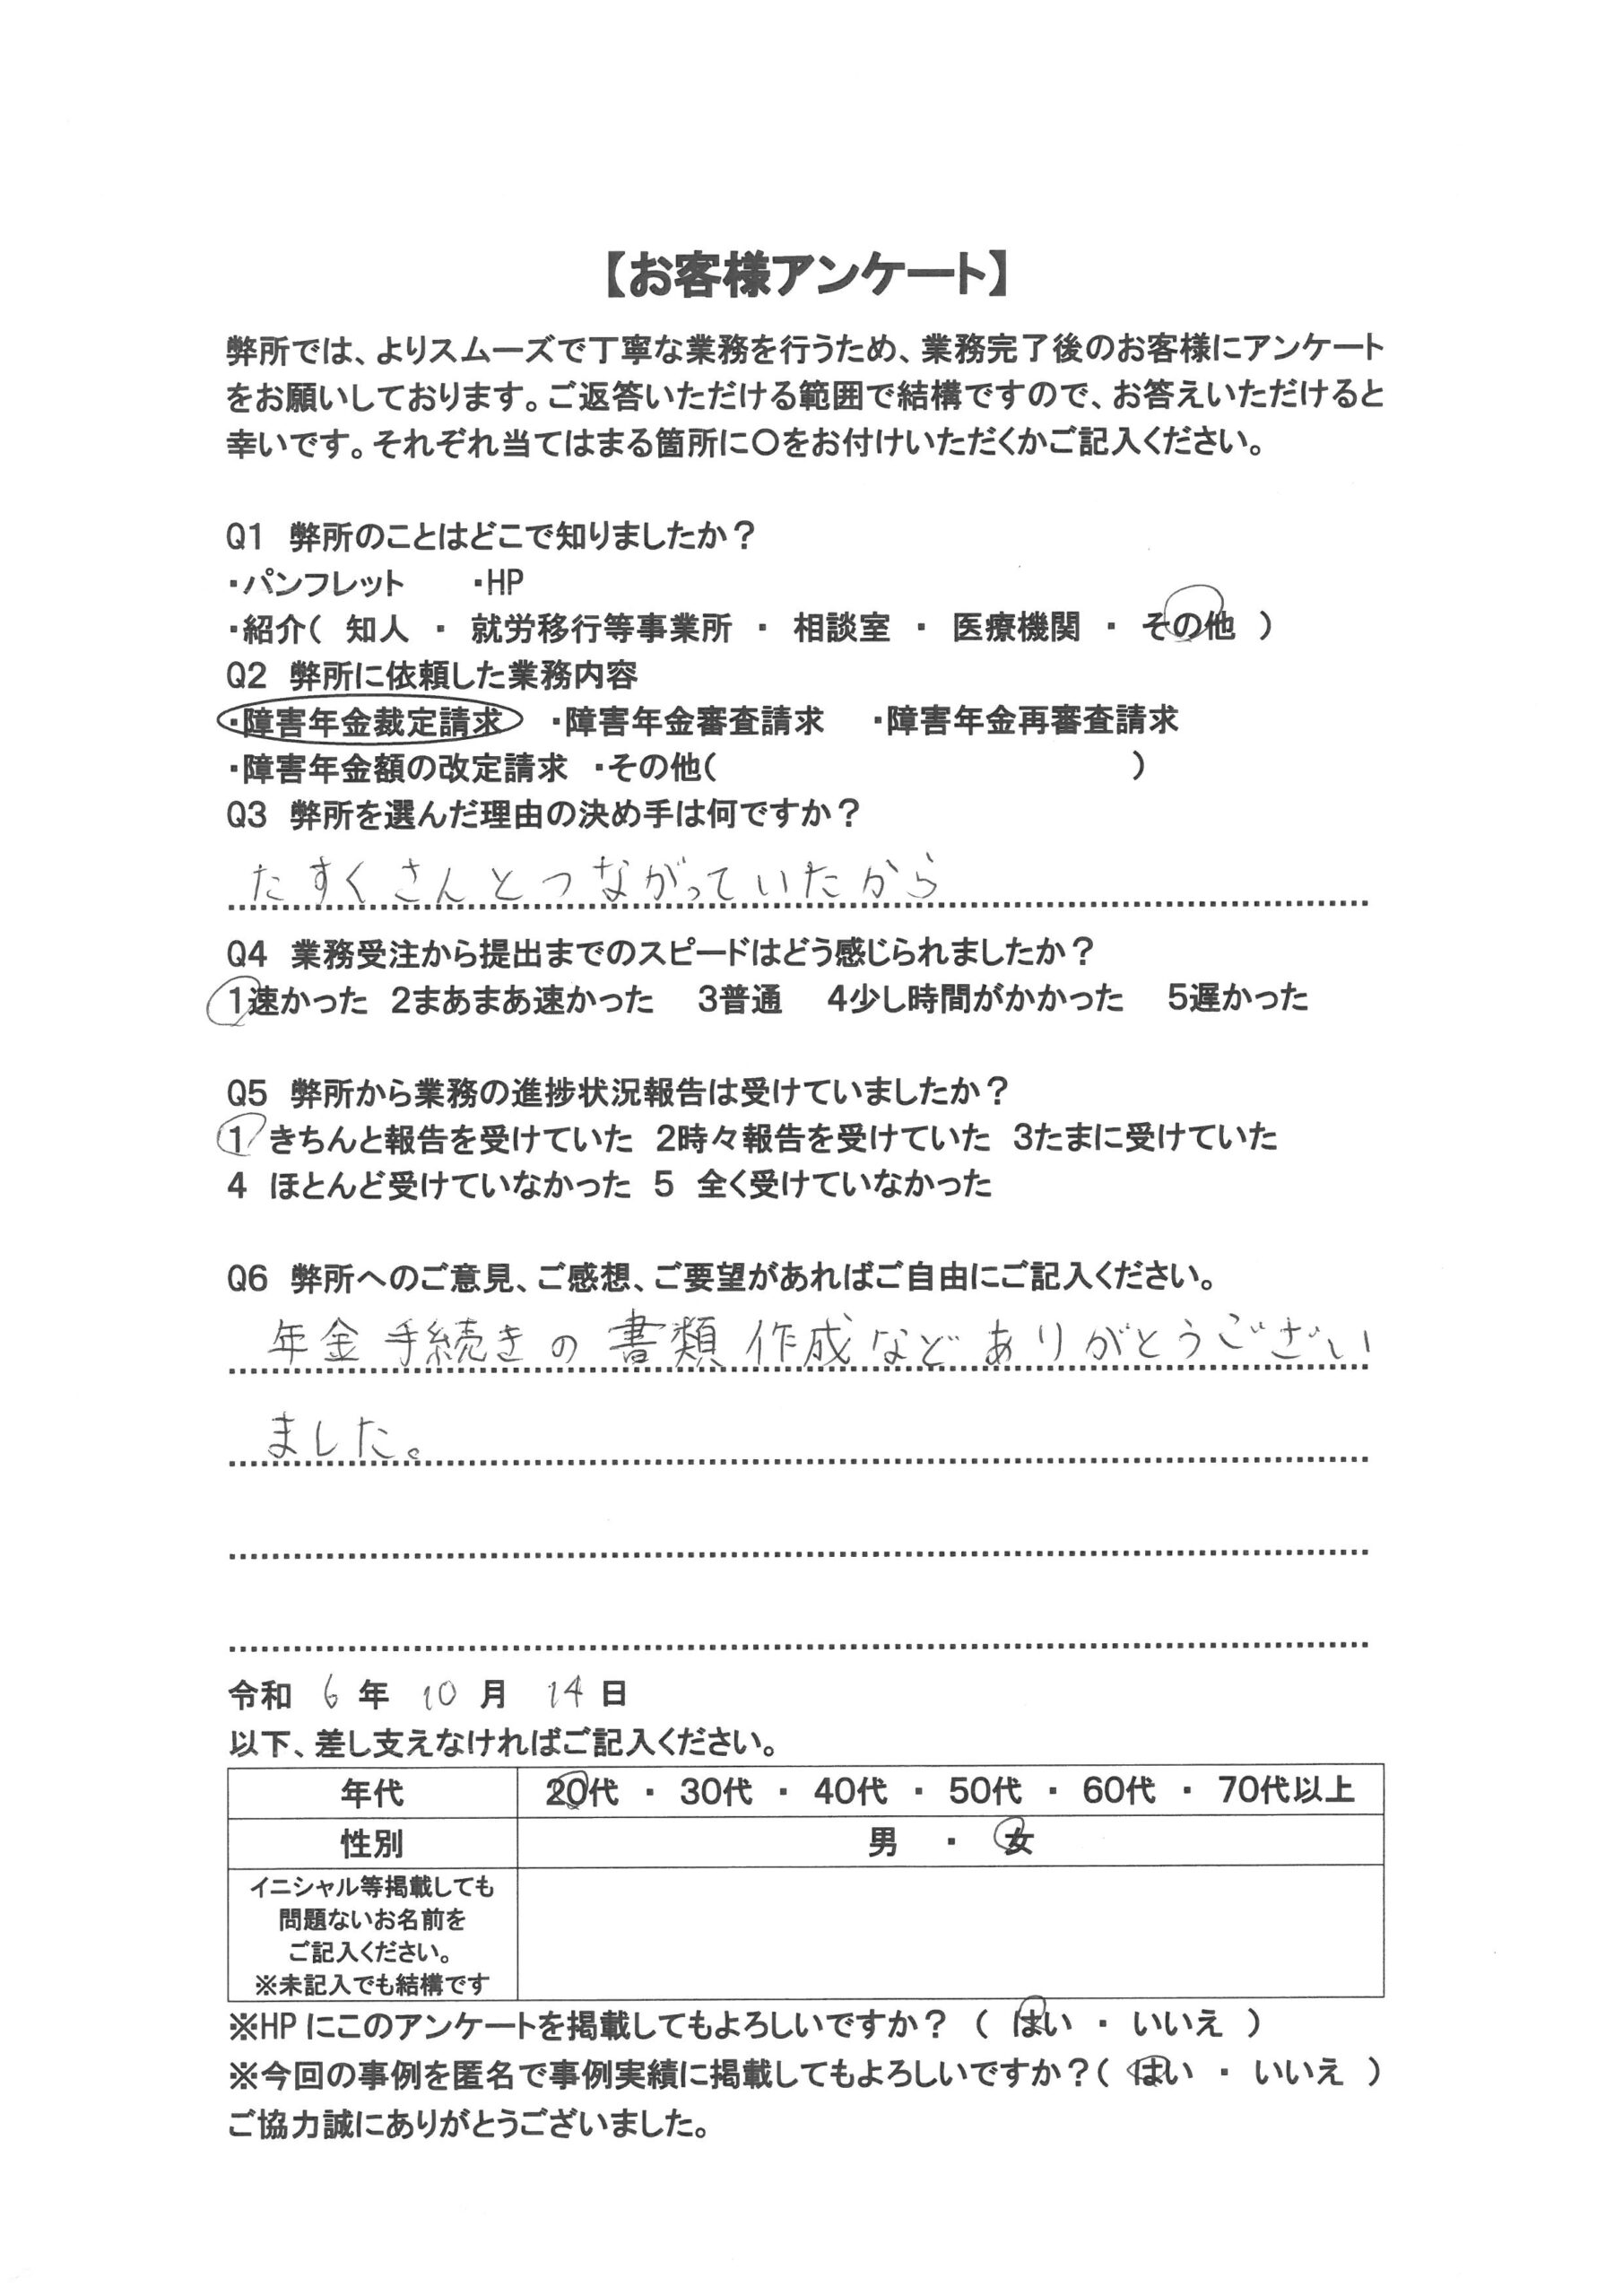 【お客様アンケート】
弊所では、よりスムーズで丁寧な業務を行うため、業務完了後のお客様にアンケート
をお願いしております。ご返答いただける範囲で結構ですので、お答えいただけると
幸いです。それぞれ当てはまる箇所に〇をお付けいただくかご記入ください。
Q1 弊所のことはどこで知りましたか？
・パンフレット ・HP
・紹介( 知人 ・ 就労移行等事業所 ・ 相談室 ・ 医療機関 ・ その他 )
Q2 弊所に依頼した業務内容
・障害年金裁定請求 ・障害年金審査請求 ・障害年金再審査請求
・障害年金額の改定請求 ・その他( )
Q3 弊所を選んだ理由の決め手は何ですか？
たすくさんとつながっていたから
Q4 業務受注から提出までのスピードはどう感じられましたか？
1速かった 2まあまあ速かった 3普通 4少し時間がかかった 5遅かった
Q5 弊所から業務の進捗状況報告は受けていましたか？
1 きちんと報告を受けていた 2時々報告を受けていた 3たまに受けていた
4 ほとんど受けていなかった 5 全く受けていなかった
Q6 弊所へのご意見、ご感想、ご要望があればご自由にご記入ください。
年金手続きの書類作成などありがとうござい
ました。
令和 6 年 10 月 14 日
以下、差し支えなければご記入ください。
年代 20代 ・ 30代 ・ 40代 ・ 50代 ・ 60代 ・ 70代以上
性別 男 ・ 女
イニシャル等掲載しても
問題ないお名前を
ご記入ください。
※未記入でも結構です
※HPにこのアンケートを掲載してもよろしいですか？ ( はい ・ いいえ )
※今回の事例を匿名で事例実績に掲載してもよろしいですか？( はい ・ いいえ )
ご協力誠にありがとうございました。